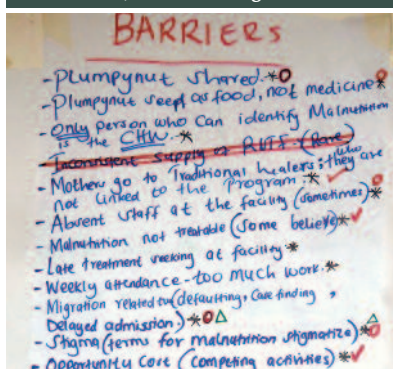 BARRIERS
- Plumpynut shared.*
- Plumpynut seen as food, not medicine*
- Only person who can identify Malnutrition
is the CHW.*
- Inconsistent supply of RUTF. (Rare)
- Mothers go to Traditional healers; they who are
not linked to the Program.*
- Absent staff at the facility (sometimes)
- Malnutrition not treatable (some believe)*
- Late treatment seeking at facility*
- Weekly attendance - too much work.*
- Migration related to (defaulting, Case finding,
Delayed admission.)*
- Stigma (terms for malnutrition stigmatize)*
- Opportunity Cost (competing activities)*